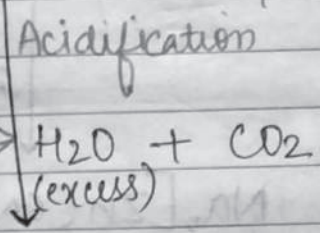 Acidification
H2O + CO2
(excess)